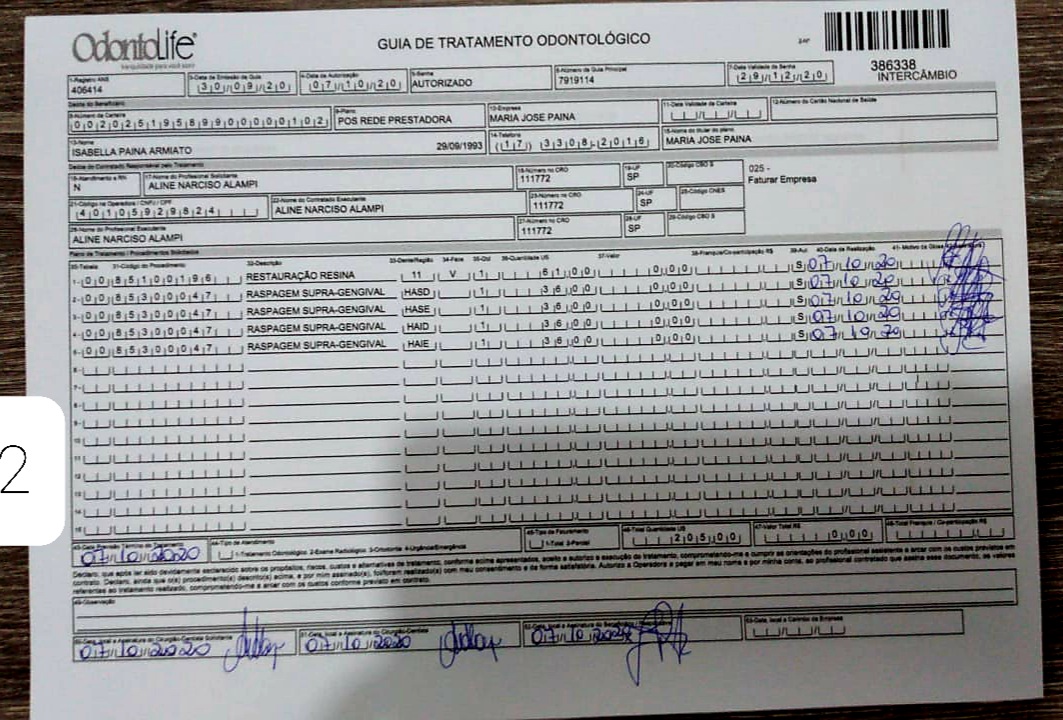 OdontoLife®
tranquilidade para você sorrir
GUIA DE TRATAMENTO ODONTOLÓGICO
2-Nº
386338
INTERCÂMBIO
1-Registro ANS
406414
3-Data de Emissão da Guia
30/09/20
4-Data de Autorização
07/10/20
5-Senha
AUTORIZADO
6-Número da Guia Principal
7919114
7-Data Validade da Senha
29/12/20
Dados do Beneficiário
8-Número da Carteira
00202519589900000102
9-Plano
POS REDE PRESTADORA
10-Empresa
MARIA JOSE PAINA
11-Data Validade da Carteira
12-Número do Cartão Nacional de Saúde
13-Nome
ISABELLA PAINA ARMIATO
29/09/1993
14-Telefone
(17) 3308-2016
15-Nome do titular do plano
MARIA JOSE PAINA
Dados do Contratado Responsável pelo Tratamento
16-Atendimento a RN
N
17-Nome do Profissional Solicitante
ALINE NARCISO ALAMPI
18-Número no CRO
111772
19-UF
SP
20-Código CBO S
025 -
Faturar Empresa
21-Código na Operadora / CNPJ / CPF
40105929824
22-Nome do Contratado Executante
ALINE NARCISO ALAMPI
23-Número no CRO
111772
24-UF
SP
25-Código CNES
26-Nome do Profissional Executante
ALINE NARCISO ALAMPI
27-Número no CRO
111772
28-UF
SP
29-Código CBO S
Plano de Tratamento / Procedimentos Solicitados
30-Tabela 31-Código do Procedimento 32-Descrição 33-Dente/Região 34-Face 35-Qtd 36-Quantidade US 37-Valor 38-Franquia/Co-participação R$ 39-Aut 40-Data de Realização 41- Motivo da Glosa
1- 00 85100196 RESTAURAÇÃO RESINA 11 V 1 61,00 0,00 S 07/10/20
2- 00 85300047 RASPAGEM SUPRA-GENGIVAL HASD 1 36,00 0,00 S 07/10/20
3- 00 85300047 RASPAGEM SUPRA-GENGIVAL HASE 1 36,00 0,00 S 07/10/20
4- 00 85300047 RASPAGEM SUPRA-GENGIVAL HAID 1 36,00 0,00 S 07/10/20
5- 00 85300047 RASPAGEM SUPRA-GENGIVAL HAIE 1 36,00 0,00 S 07/10/20
6-
7-
8-
9-
10-
11-
12-
13-
14-
15-
07/10/2020
44-Tipo de Atendimento
1-Tratamento Odontológico 2-Exame Radiológico 3-Ortodontia 4-Urgência/Emergência
45-Tipo de Faturamento
1-Total 2-Parcial
46-Total Quantidade US
205,00
47-Valor Total R$
0,00
48-Total Franquia / Co-participação R$
Declaro, que após ter sido devidamente esclarecido sobre os propósitos, riscos, custos e alternativas de tratamento, conforme acima apresentados, aceito e autorizo a execução do tratamento, comprometendo-me a cumprir as orientações do profissional assistente e arcar com os custos previstos em
contrato. Declaro, ainda que o(s) procedimento(s) descrito(s) acima, e por mim assinado(s), foi/foram realizado(s) com meu consentimento e de forma satisfatória. Autorizo a Operadora a pagar em meu nome e por minha conta, ao profissional contratado que assina esse documento, os valores
referentes ao tratamento realizado, comprometendo-me a arcar com os custos conforme previsto em contrato.
49-Observação
50-Data, local e Assinatura do Cirurgião-Dentista Solicitante
07/10/2020
51-Data, local e Assinatura do Cirurgião-Dentista
07/10/2020
07/10/2020
53-Data, local e Carimbo da Empresa
2